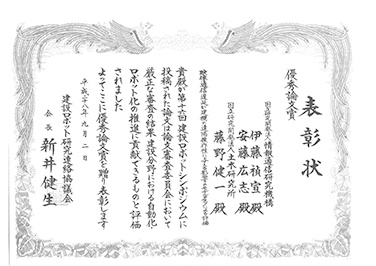 表彰状
優秀論文賞
国立研究開発法人情報通信研究機構
伊藤禎宣殿
安藤広志殿
国立研究開発法人土木研究所
藤野健一殿
貴殿が第十六回建設ロボットシンポジウムに
投稿された論文は論文審査委員会において
厳正な審査の結果建設分野における自動化
ロボット化の推進に貢献できるものと評価
されました
よってここに優秀論文賞を贈り表彰します
平成二八年九月二日
建設ロボット研究連絡協議会
会長 新井健生